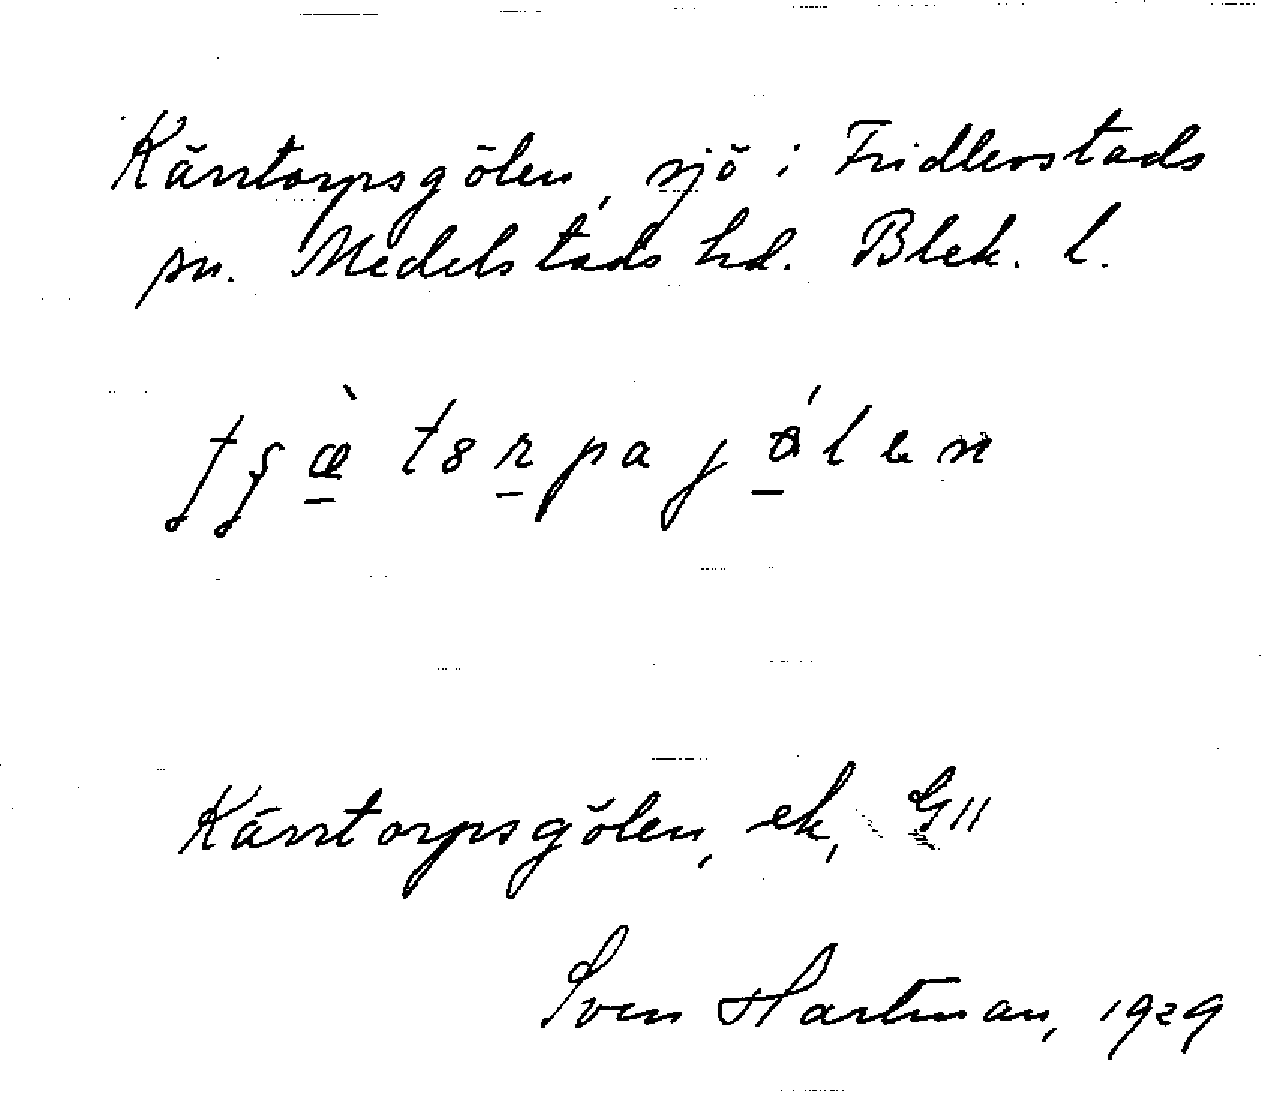 Kärrtorpsgölen, sjö i Fridlevstads
sn. Medelstads hd. Blek. l.
Kärrtorpsgölen, ek, G 11
Sven Hartman, 1929